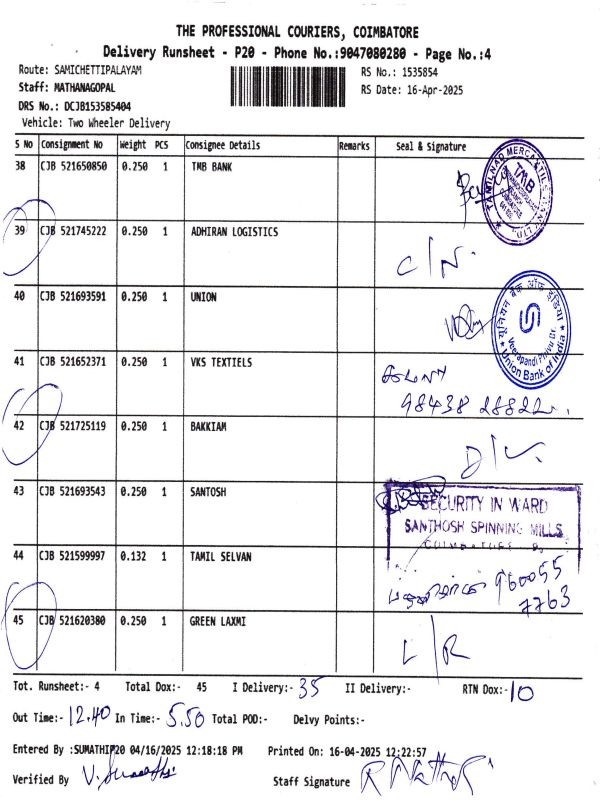 THE PROFESSIONAL COURIERS, COIMBATORE
Delivery Runsheet - P20 - Phone No.:9047080280 - Page No.:4
Route: SAMICHETTIPALAYAM RS No.: 1535854
Staff: MATHANAGOPAL RS Date: 16-Apr-2025
DRS No.: DCJB153585404
Vehicle: Two Wheeler Delivery
S No Consignment No Weight PCS Consignee Details Remarks Seal & Signature
38 CJB 521650850 0.250 1 TMB BANK
TAMILNAD MERCANTILE BANK LTD
TMB
39 CJB 521745222 0.250 1 ADHIRAN LOGISTICS
C/N.
40 CJB 521693591 0.250 1 UNION
यूनियन बैंक ऑफ इंडिया
Veerapandi Pirivu Br.
Union Bank of India
41 CJB 521652371 0.250 1 VKS TEXTIELS
98438 28822
42 CJB 521725119 0.250 1 BAKKIAM
D/L
43 CJB 521693543 0.250 1 SANTOSH
SECURITY IN WARD
SANTHOSH SPINNING MILLS
COIMBATORE
44 CJB 521599997 0.132 1 TAMIL SELVAN
960055
7763
45 CJB 521620380 0.250 1 GREEN LAXMI
L/R
Tot. Runsheet:- 4 Total Dox:- 45 I Delivery:- 35 II Delivery:- RTN Dox:- 10
Out Time:- 12.40 In Time:- 5.50 Total POD:- Delvy Points:-
Entered By :SUMATHIP20 04/16/2025 12:18:18 PM Printed On: 16-04-2025 12:22:57
Verified By Staff Signature